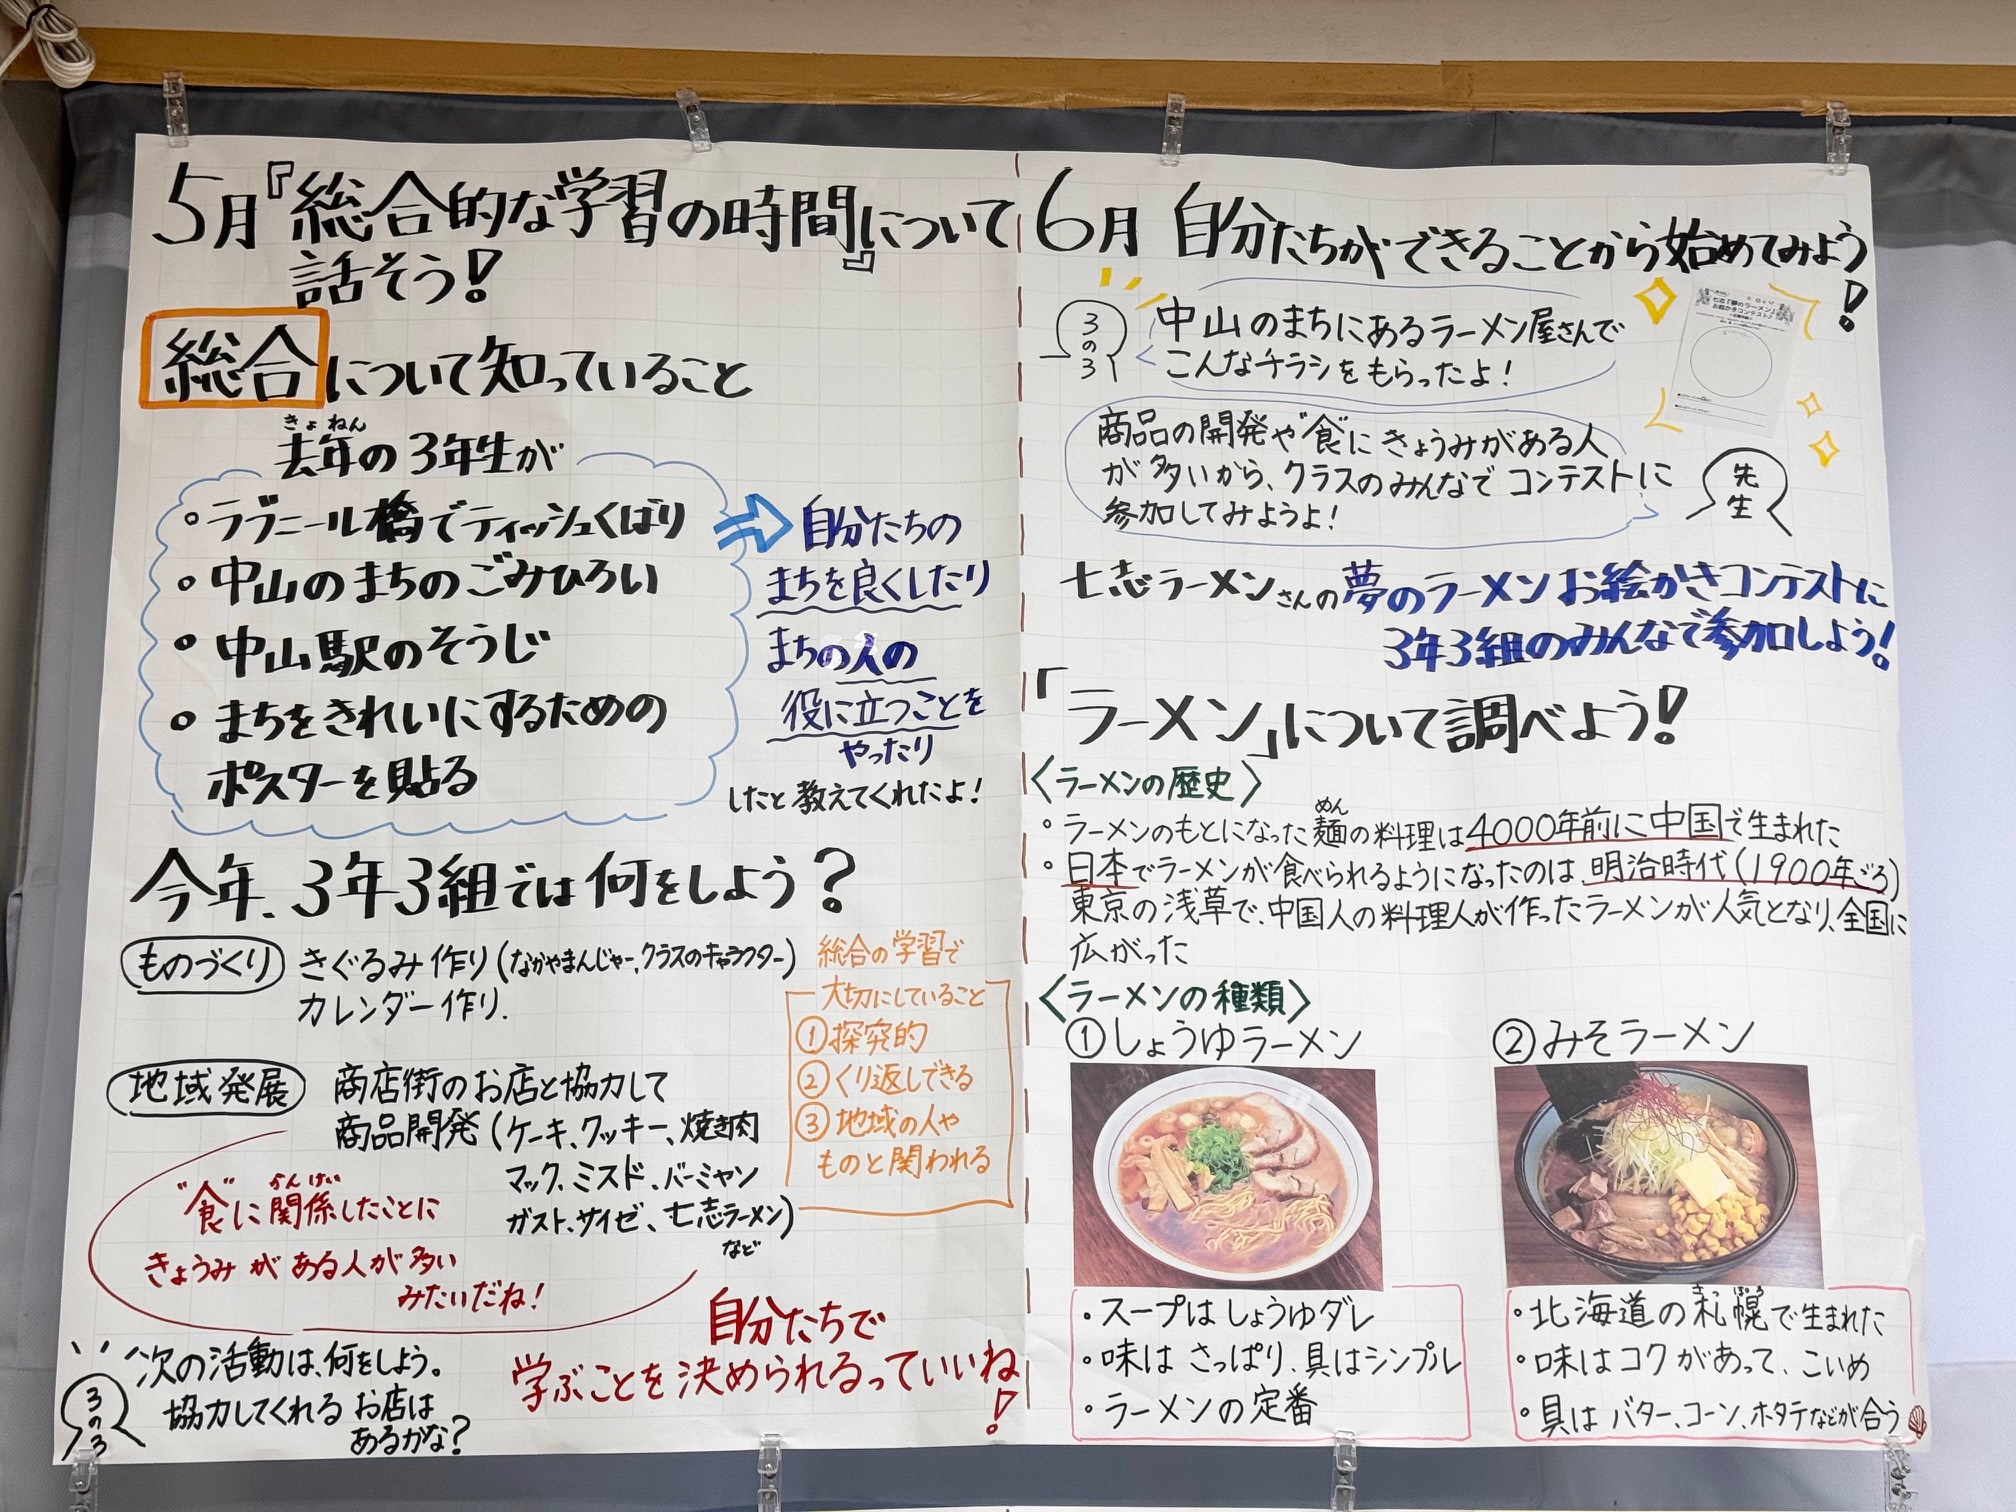 5月『総合的な学習の時間』について
話そう!
総合について知っていること
きょねん
去年の3年生が
・ラブニール橋でティッシュくばり
・中山のまちのごみひろい
・中山駅のそうじ
・まちをきれいにするための
ポスターを貼る
自分たちの
まちを良くしたり
まちの人の
役に立つことを
やったり
したと教えてくれたよ!
今年、3年3組では何をしよう?
ものづくり きぐるみ作り(なかやまんじゃー、クラスのキャラクター)
カレンダー作り.
地域発展 商店街のお店と協力して
商品開発(ケーキ、クッキー、焼き肉
マック、ミスド、バーミヤン
ガスト、サイゼ、七志ラーメン)
など
総合の学習で
大切にしていること
①探究的
②くり返しできる
③地域の人や
ものと関われる
かんけい
"食"に関係したことに
きょうみがある人が多い
みたいだね!
自分たちで
学ぶことを決められるっていいね
!
3の3
次の活動は、何をしよう。
協力してくれるお店は
あるかな?
6月 自分たちができることから始めてみよう
!
3の3
中山のまちにあるラーメン屋さんで
こんなチラシをもらったよ!
七志「夢のラーメン」
お絵かきコンテスト
商品の開発や"食"にきょうみがある人
が多いから、クラスのみんなでコンテストに
参加してみようよ!
先生
七志ラーメンさんの夢のラーメンお絵かきコンテストに
3年3組のみんなで参加しよう!
「ラーメン」について調べよう!
〈ラーメンの歴史〉
めん
・ラーメンのもとになった麺の料理は4000年前に中国で生まれた
・日本でラーメンが食べられるようになったのは、明治時代(1900年ごろ)
東京の浅草で、中国人の料理人が作ったラーメンが人気となり、全国に
広がった
〈ラーメンの種類〉
①しょうゆラーメン
・スープはしょうゆダレ
・味はさっぱり、具はシンプル
・ラーメンの定番
②みそラーメン
さっぽろ
・北海道の札幌で生まれた
・味はコクがあって、こいめ
・具はバター、コーン、ホタテなどが合う